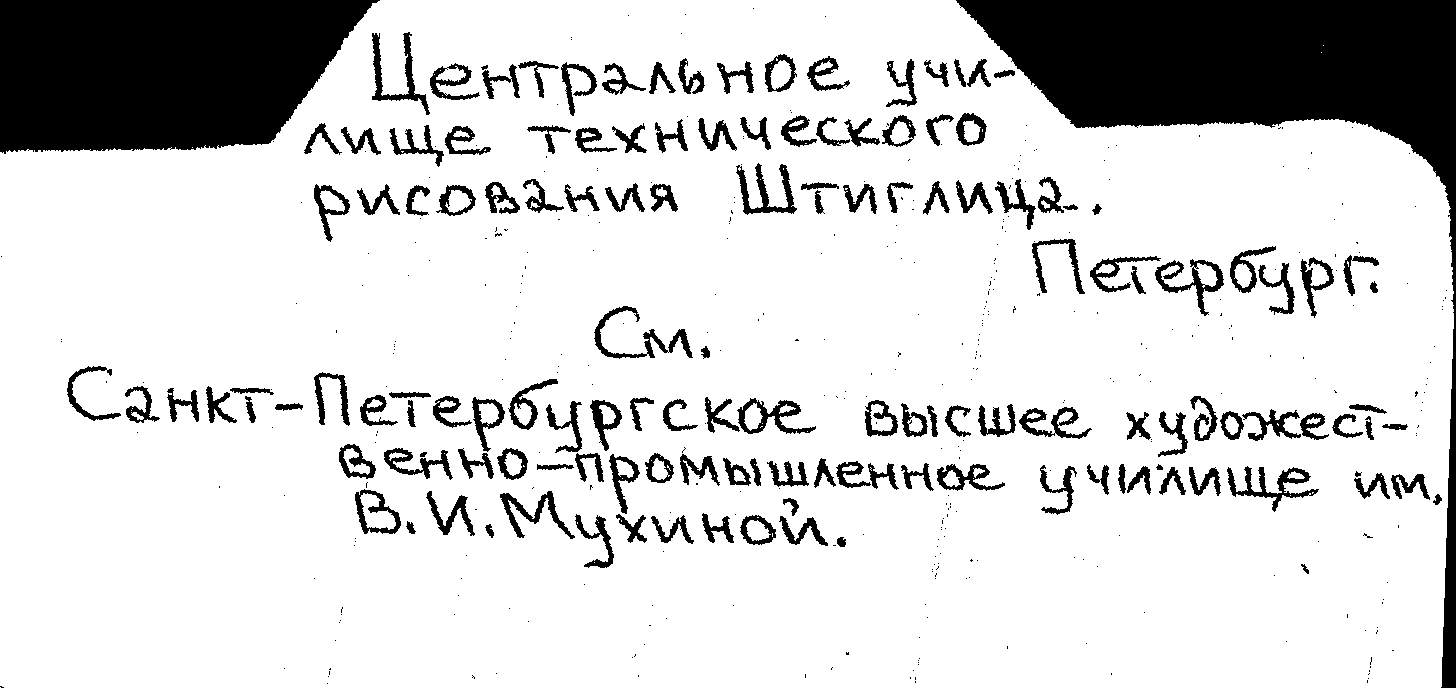 Центральное учи-
лище технического
рисования Штиглица.
Петербург.
См.
Санкт-Петербургское высшее художест-
венно-промышленное училище им.
В.И.Мухиной.